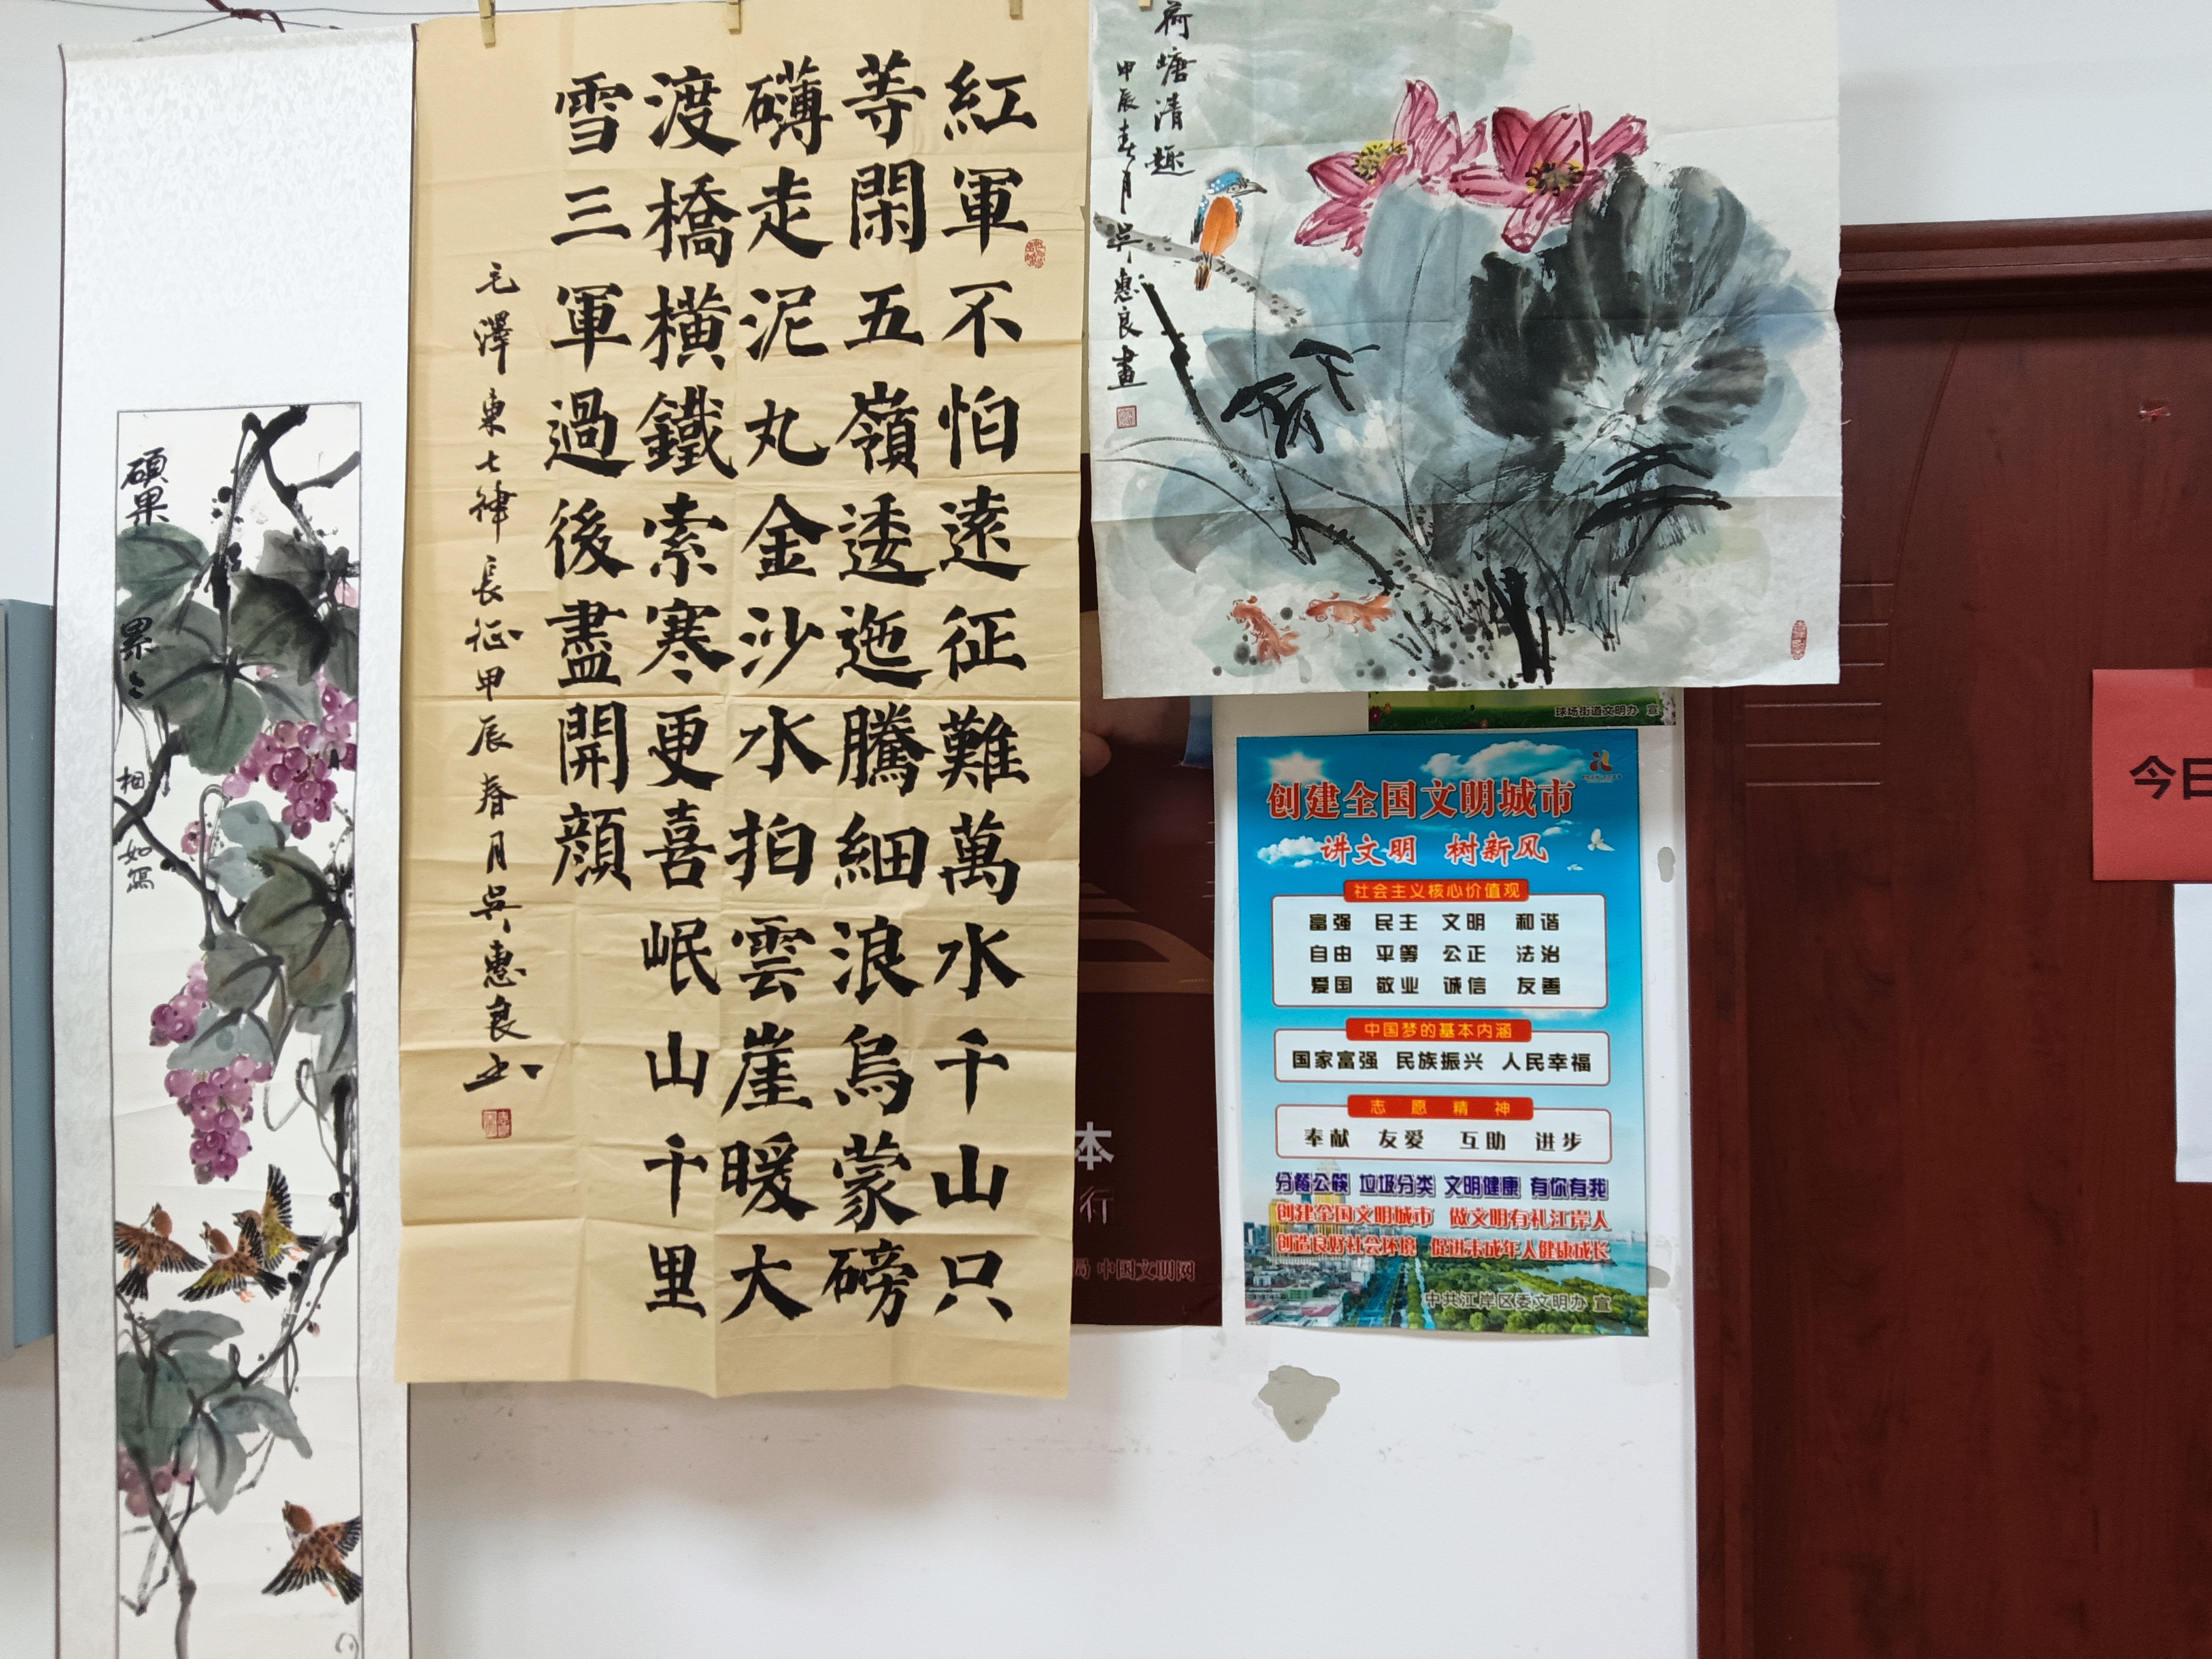 碩果累々
相如寫
紅軍不怕遠征難萬水千山只
等閑五嶺逶迤騰細浪烏蒙磅
礴走泥丸金沙水拍雲崖暖大
渡橋橫鐵索寒更喜岷山千里
雪三軍過後盡開顏
毛澤東七律長征甲辰春月吳惠良书
荷塘清趣
甲辰春月吳惠良畫
球场街道文明办 宣
创建全国文明城市
讲文明 树新风
社会主义核心价值观
富强 民主 文明 和谐
自由 平等 公正 法治
爱国 敬业 诚信 友善
中国梦的基本内涵
国家富强 民族振兴 人民幸福
志愿精神
奉献 友爱 互助 进步
分餐公筷 垃圾分类 文明健康 有你有我
创建全国文明城市 做文明有礼江岸人
创造良好社会环境 促进未成年人健康成长
中共江岸区委文明办 宣
本
行
局 中国文明网
今日